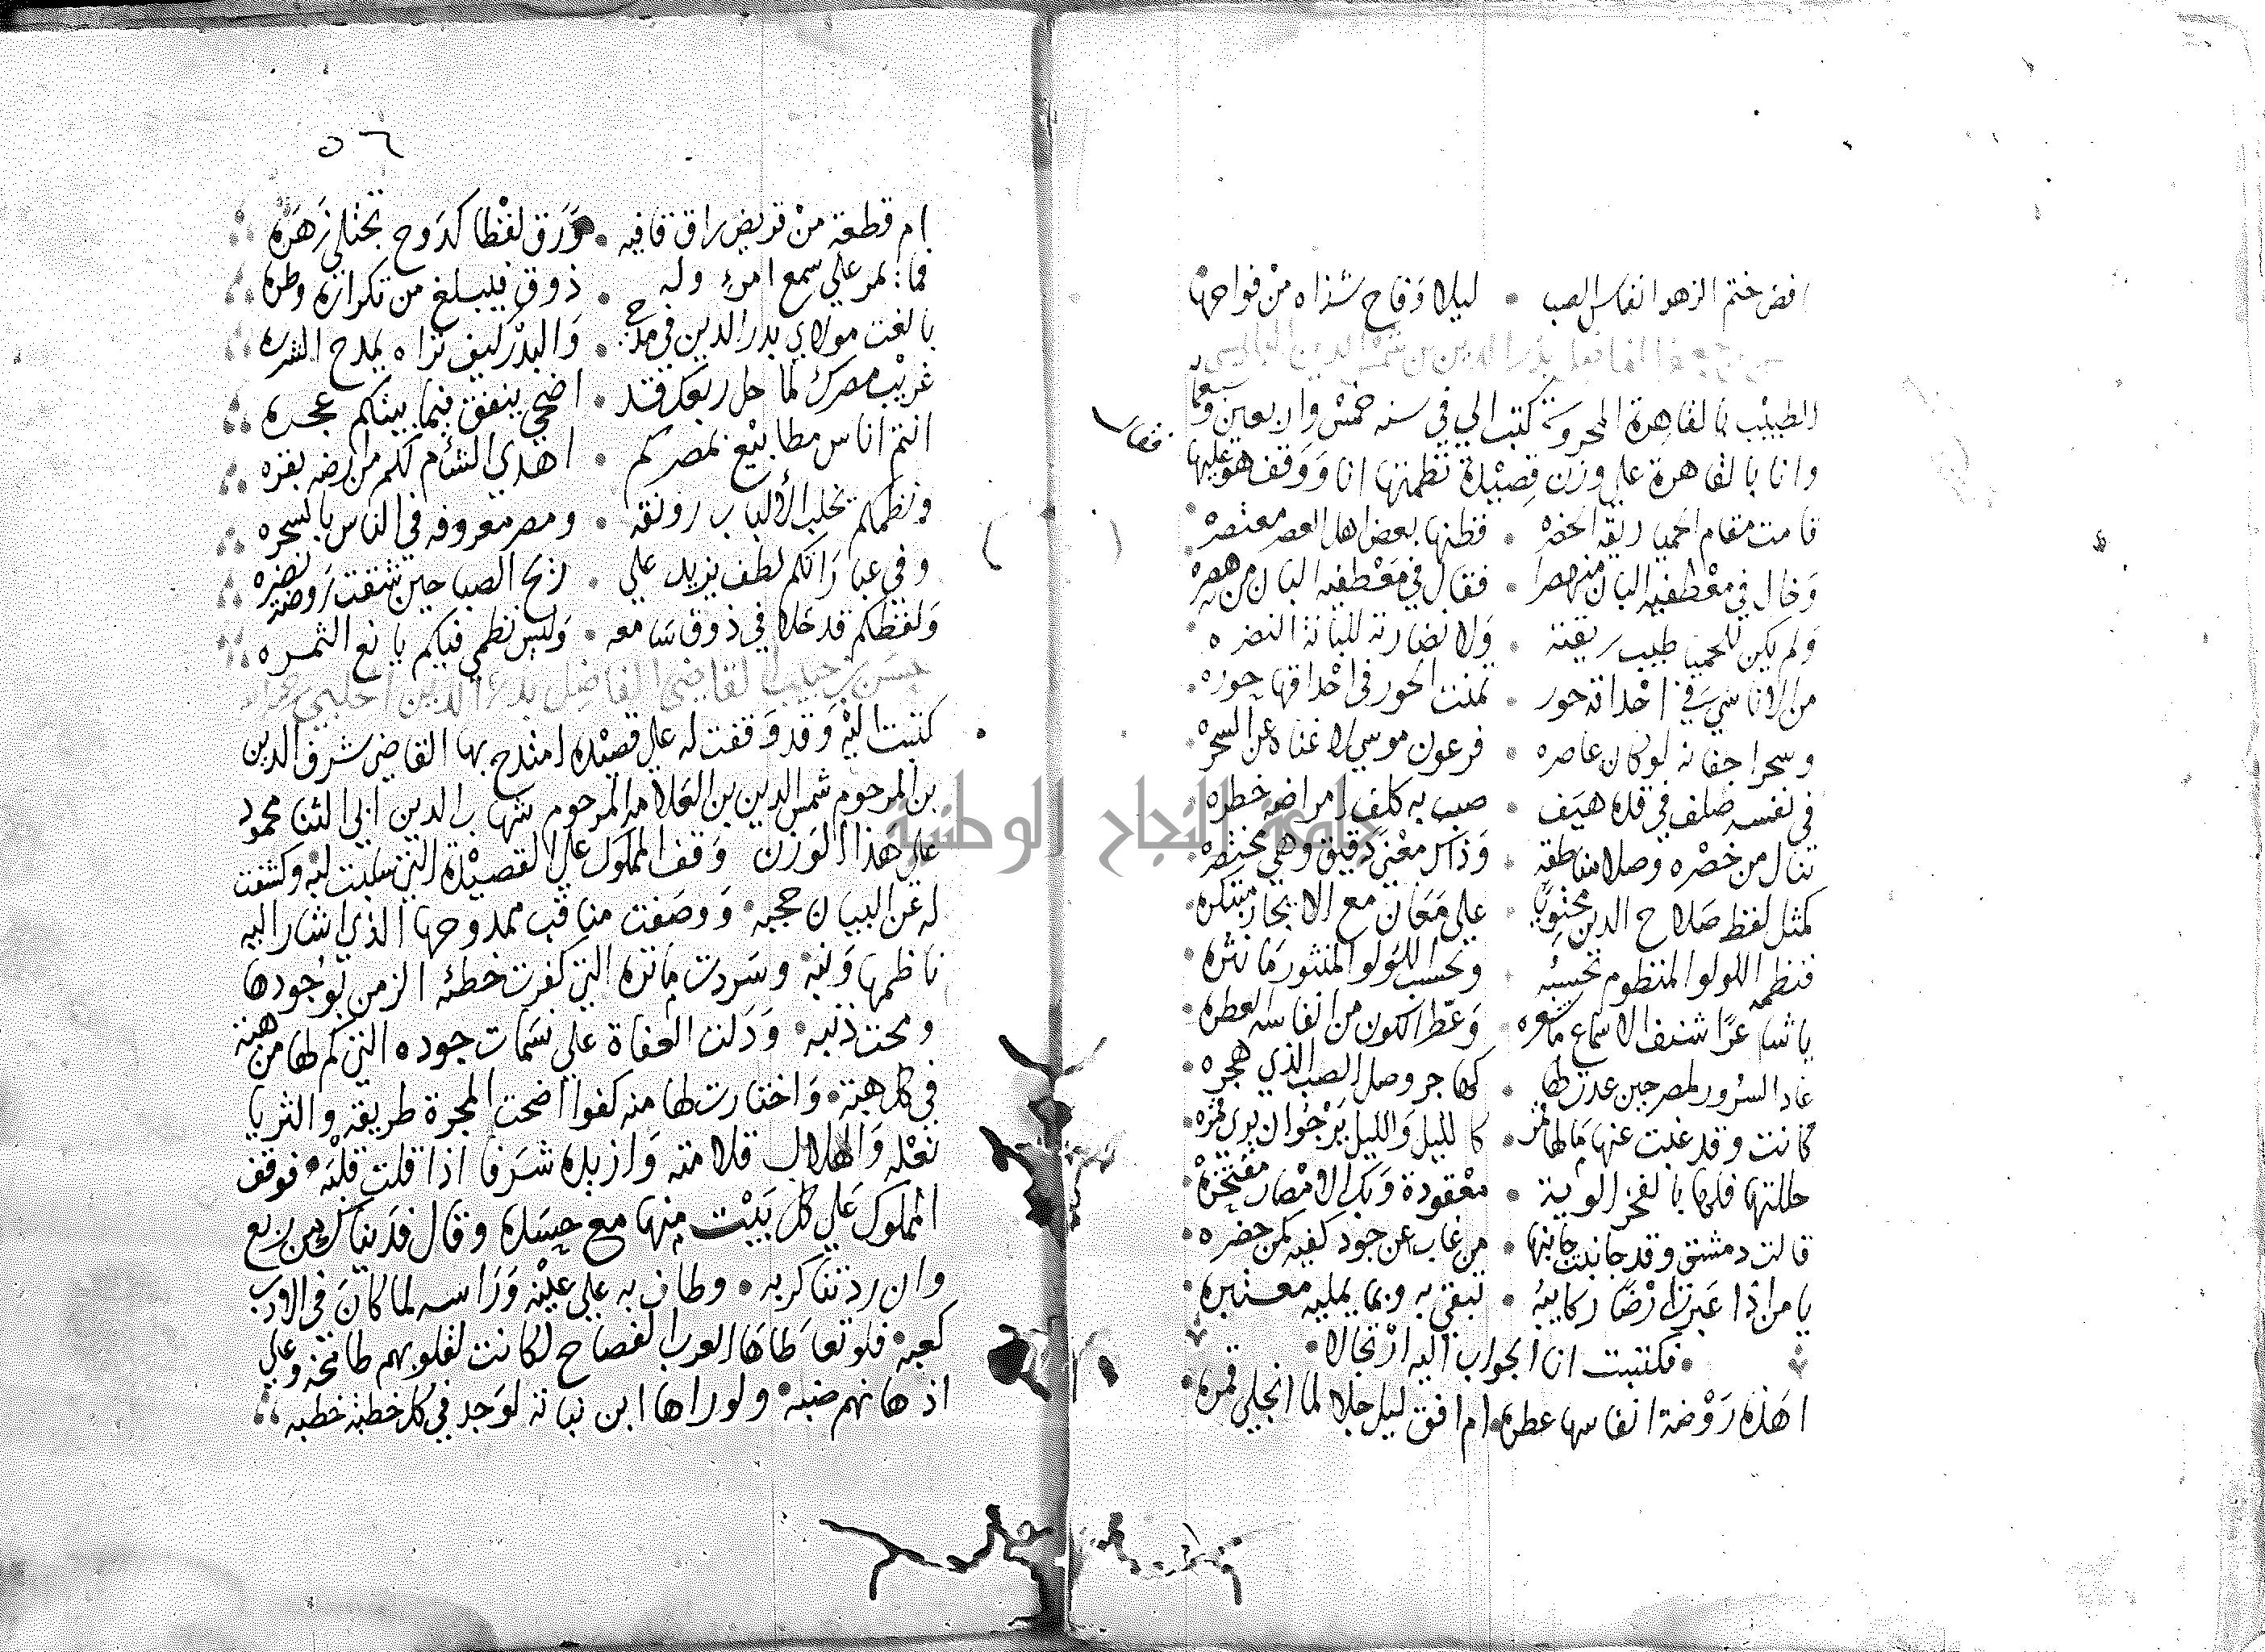 افض ختم الزهر انفاس الصبا • ليلا وفاح شذاه من فواحها
الطبيب بالقاهرة المحروسة كتب الي في سنه خمس واربعين وسبعماية
وانا بالقاهرة علي وزن قصيدة نظمتها انا ووقف هو عليها
قامت مقام الحميا ريقه الخضره • فظنها بعض اهل العصر معتصره
وخال في معطفيه البان منهصرا • فقال في معطفيه البان من هصره
ولم يكن للحميا طيب ريقته • ولا نضارته للبانة النضره
من لاناسي في احداقه حور • تمنت الحور في احداقها حوره
وسحر اجفانه لو كان عاصره • فرعون موسي لاغناه عن السحره
في نفسه صلف في قده هيف • صب به كلف امراضه خطره
تنال من خصره وصلا مناطقه • وذاك معني دقيق وهي مختصره
كمثل لفظ صلاح الدين محتويا • علي معان مع الايجاز مبتكره
فنظمه اللولو المنظوم تحسبه • وتحسب اللولو المنثور ما نثره
يا شاعرا شنف الاسماع ما شعره • وعطر الكون من انفاسه العطره
عاد السرور لمصر حين عدت لها • كهاجر وصل الصب الذي هجره
كانت وقد غبت عنها ما لها قمر • كالليل والليل يرجوان يري قمره
حللتها فلها بالفخر الوية • معقودة وبك الامصار مفتخره
قالت دمشق وقد جانبت جانبها • من غاب عن جود كفيه كمن حضره
يا من اذا عبرت ارضا ركايبه • تبقي به وبما يمليه معتبره
• فكتبت انا الجواب اليه ارتجالا •
اهذه روضة انفاسها عطره • ام افق ليل جلا لما انجلي قمره
٥٦
ام قطعة من قريض راق قافيه • ورق لفظا كدوح تجتلي زهره
فما يمر علي سمع امرء وله • ذوق فيبلغ من تكراره وطره
بالغت مولاي بدر الدين في مدحي • والبدر كيف تراه يمدح الشرره
غريب مصرك لما حل ربعك قد • اضحي ينفق فيما بينكم عجره
انتم اناس مطابيع بمصركم • اهدي الشام لكم من ارضه بقره
ونظمكم تخلب الالباب رونقه • ومصر معروفه في الناس بالسحره
وفي عباراتكم لطف يزيد علي • ريح الصبا حين شقت روضة نضره
ولفظكم قد حلا في ذوق سامعه • وليس نظمي فيكم يانع الثمره
حسن بن حبيب القاضي الفاضل بدر الدين الحلبي
كتبت اليه وقد وقفت له علي قصيده امتدح بها القاضي شرف الدين
بن المرحوم شمس الدين بن العلامه المرحوم شهاب الدين ابي الثنا محمود
علي هذا الوزن وقف المملوك علي القصيدة التي سلبت لبه وكشفت
له عن البيان حجبه • ووصفت مناقب ممدوحها الذي اشار اليه
ناظمها ونبه • وسردت ماثره التي كفرت خطئه الزمن بوجودها
ومحت ذنبه • ودلت العفاة علي نسمات جوده التي كم لها من هبه
في كل هبه • واختارت لها منه كفوا اضحت المجرة طريقه والثريا
نعله والهلال قلامته وازيده شرفا اذا قلت قلبه • فوقف
المملوك علي كل بيت منها مع حسده وقال فديناك من ربع
وان ردتنا كربه • وطاف به علي عينه وراسه لما كان في الادب
كعبه • فلو تعاطاها العرب الفصاح لكانت لقلوبهم طامحة وعلي
اذهانهم صعبه • ولو راها ابن نباته لوجد في كل خطبة خطبه
جامعة النجاح الوطنية